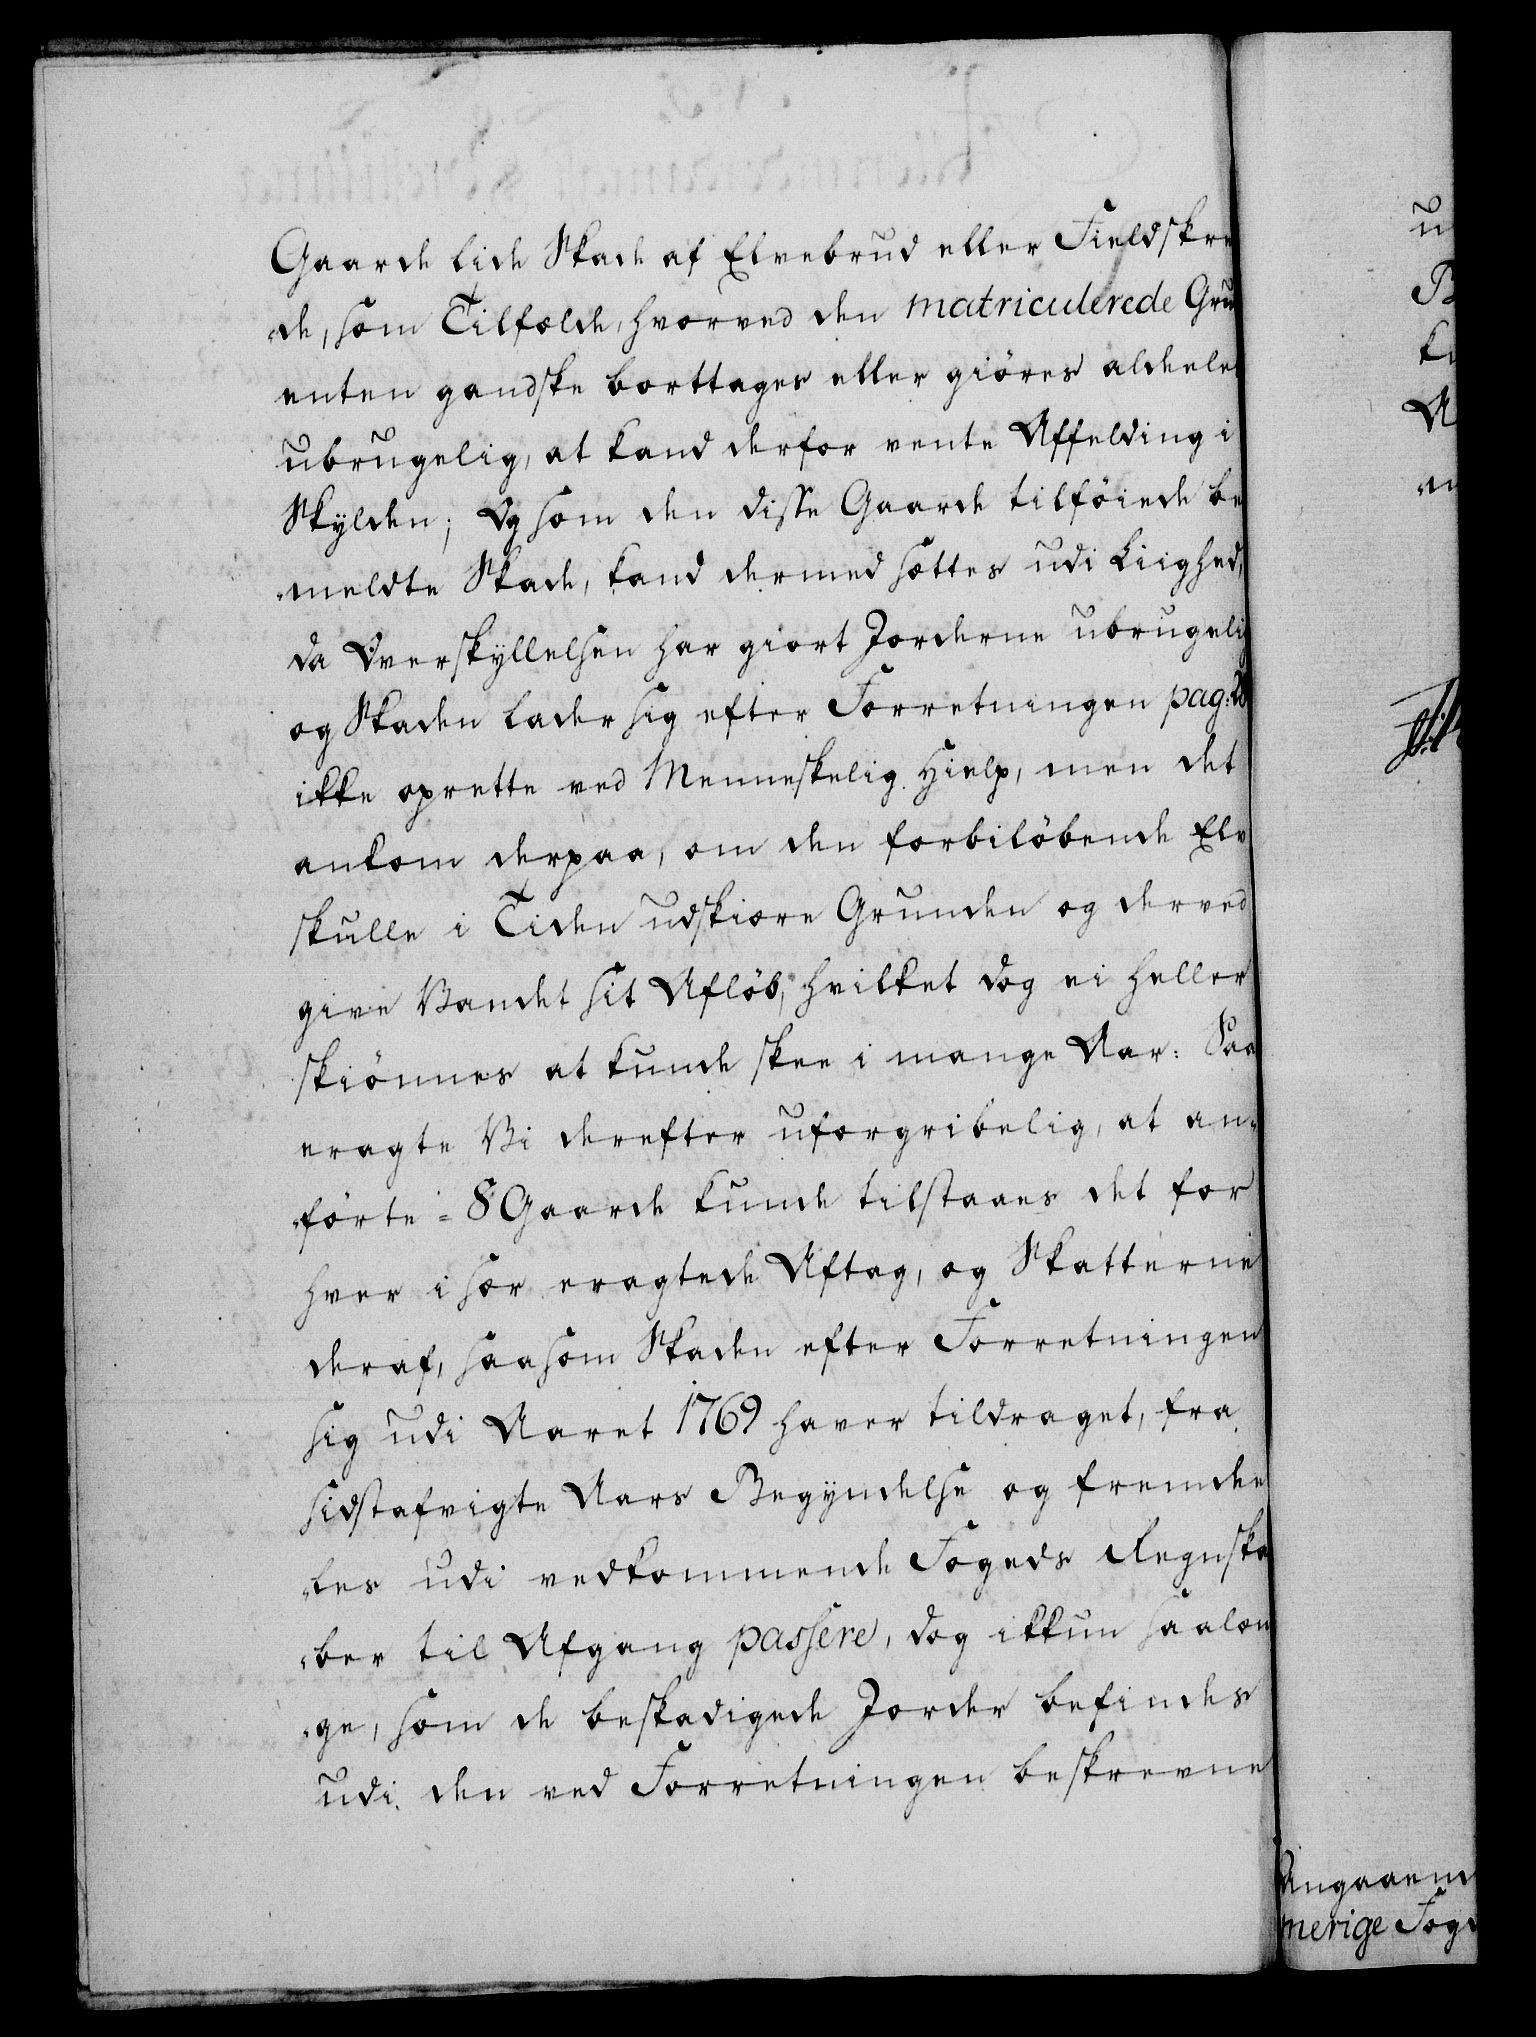 Gaarde lide Skade af Elvebrud eller Fieldskre
de, som Tilfælde, hvorved den matriculerede Gru
enten gandske borttages eller giöres aldeeles
ubrugelig, at kand derfor vente Affelding i
Skylden; Og som den disse Gaarde tilföiede be
meldte Skade, kand dermed sættes udi Liighed,
da Overskyllelsen har giort Jorderne ubrugelig
og Skaden lader sig efter Forretningen pag:
ikke oprette ved Menneskelig Hielp, men det
ankom derpaa, om den forbilöbende Elv
skulle i Tiden udskiære Grunden og derved
give Vandet sit Aflöb, hvilket dog ei heller
skiönnes at kunde skee i mange Aar: Saa
eragte Vi derefter uforgribelig, at an=
förte = 8 Gaarde kunde tilstaaes det for
hver i sær eragtede Aftag, og Skatterne
deraf, saasom Skaden efter Forretningen
sig udi Aaret 1769 haver tildraget, fra
sidstafvigte Aars Begyndelse og fremdee
les udi vedkommende Fogeds Regnska
ber til Afgang passere, dog ikkun saalæn
ge, som de beskadigede Jorder befindes
udi den ved Forretningen beskrevne
Angaaen
merige Fog